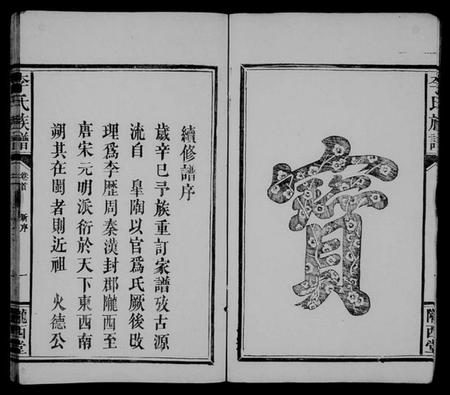 寶
李氏族譜
隴西堂
續修譜序
歲辛巳予族重訂家譜攷古源
流自 皇陶以官爲氏厥後改
理爲李歷周秦漢封郡隴西至
唐宋元明派衍於天下東西南
朔其在閩者則近祖 火德公
李氏族譜
卷首
新序
一
隴西堂